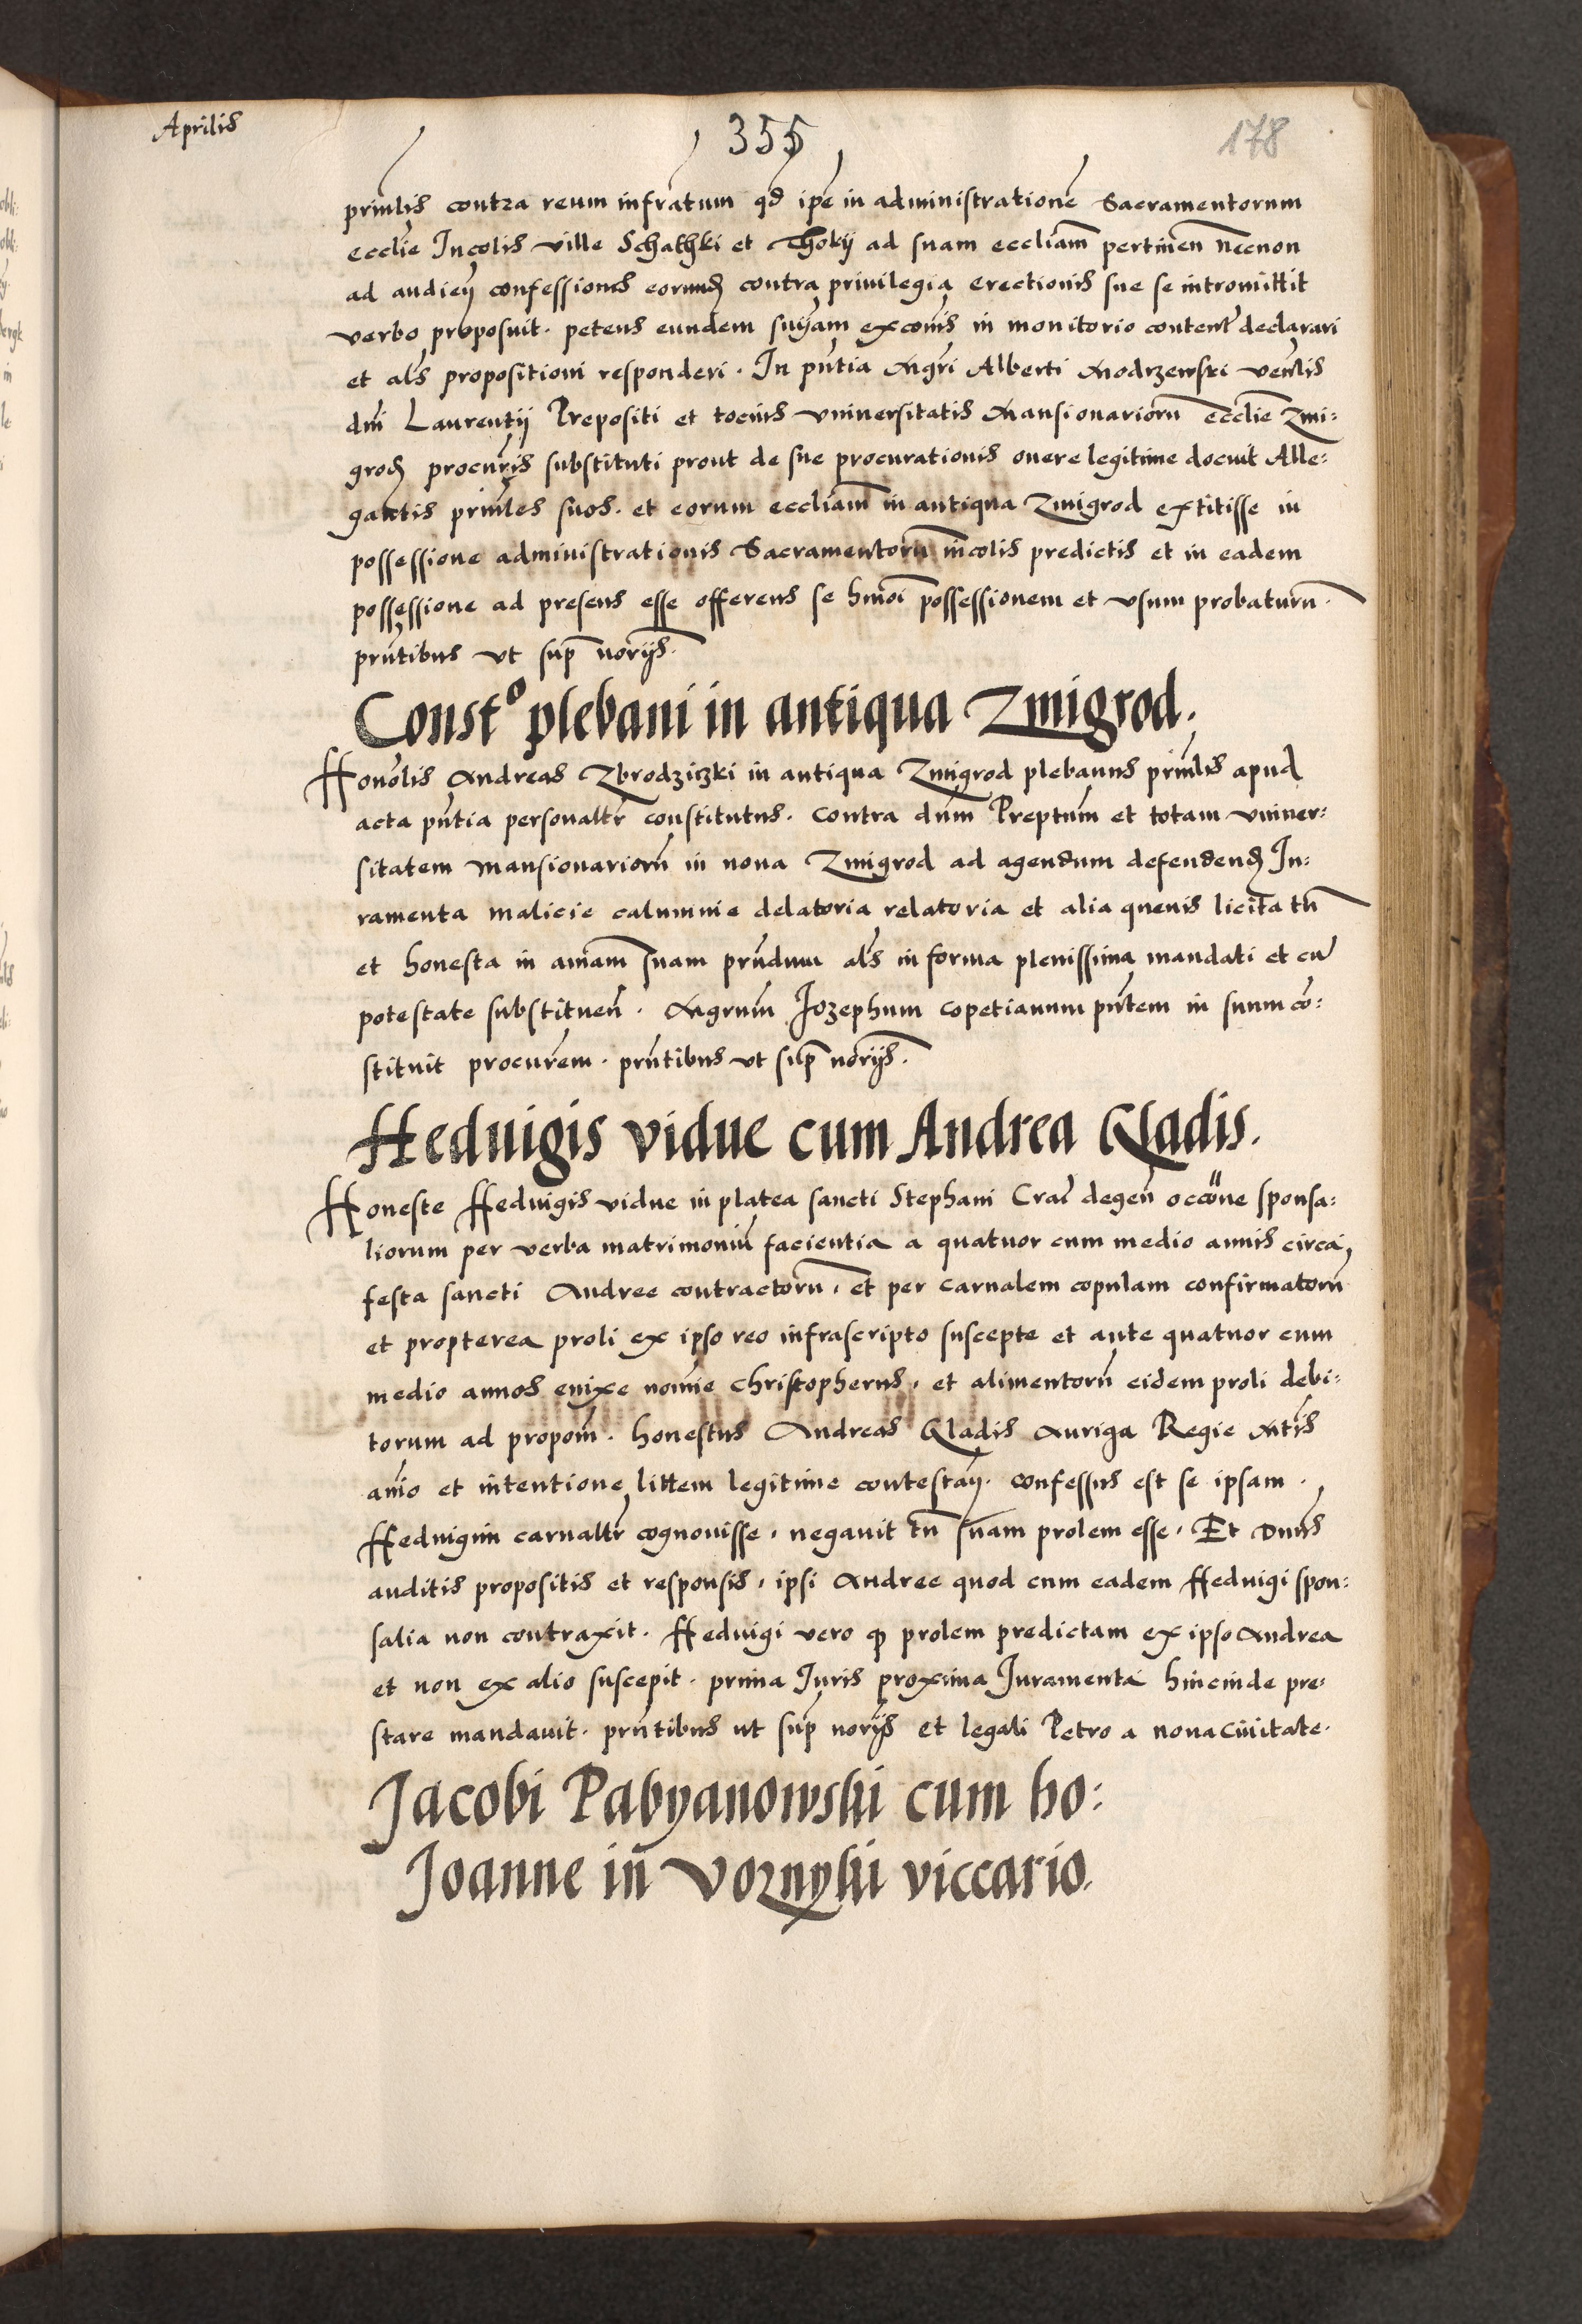 Aprilis
355
178
prinlis contra reum infratum qd ipe in administratione Sacramentorum
ecclie Incolis ville Schathki et Thokij ad suam eccliam pertinen necnon
ad audien confessiones eorund contra privilegia erectionis sue se intromittit
verbo proposuit. petens eundem in monitorio content declarari
et als propositioni responderi. In pntia Mgri Alberti Modrzewski venlis
dni Laurentij Prepositi et tocius vniversitatis Mansionarioru ecclie Zmi:
grod procuris substituti prout de sue procurationis onere legitime docuit Alle:
gantis prinles suos. et eorum eccliam in antiqua Zmigrod extitisse in
possessione administrationis Sacramentoru incolis predictis et in eadem
possessione ad presens esse offerens se hmoi possessionem et vsum probaturu.
pntibus vt sup norijs.
Constº plebani in antiqua Zmigrod.
Honolis Andreas Zbrodziczki in antiqua Zmigrod plebanus prinlis apud
acta pntia personaltr constitutus. contra dnm Preptum et totam vniver:
sitatem mansionarioru in nova Zmigrod ad agendum defendend Iu:
ramenta malicie calumnie delatoria relatoria et alia quevis licita tn
et honesta in aniam suam prndum als in forma plenissima mandati et cu
potestate substituen. Mgrum Jozephum copetianum pntem in suum co:
stituit procurem. prntibus vt sup norijs.
Heduigis vidue cum Andrea Kladis.
Honeste Heduigis vidue in platea sancti Stephani Crac degen occone sponsa:
liorum per verba matrimoniu facientia a quatuor cum medio annis circa
festa sancti Andree contractoru, et per carnalem copulam confirmatoru
et propterea proli ex ipso reo infrascripto suscepte et ante quatuor cum
medio annos enixe nomine christopherus, et alimentoru eidem proli debi:
torum ad propom. honestus Andreas Kladis Auriga Regie Mtis
animo et intentione littem legitime contestan. confessus est se ipsam.
Heduigim carnaltr cognovisse, negavit tn suam prolem esse. Et Dnus
auditis propositis et responsis, ipsi Andree quod cum eadem Heduigi spon:
salia non contraxit. Heduigi vero q prolem predictam ex ipso Andrea
et non ex alio suscepit. prima Juris proxima Juramenta hincinde pre:
stare mandavit. prntibus ut sup norijs et legali Petro a nova civitate.
Jacobi Pabyanowski cum ho:
Joanne in Voznyki viccario.